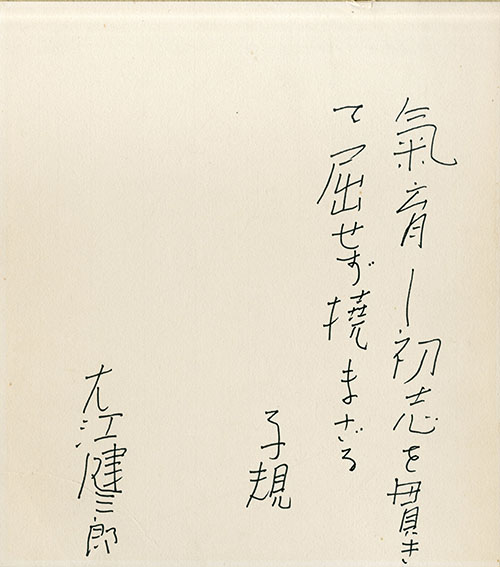 氣育し初志を貫き
て屈せず撓まざる
子規
大江健三郎